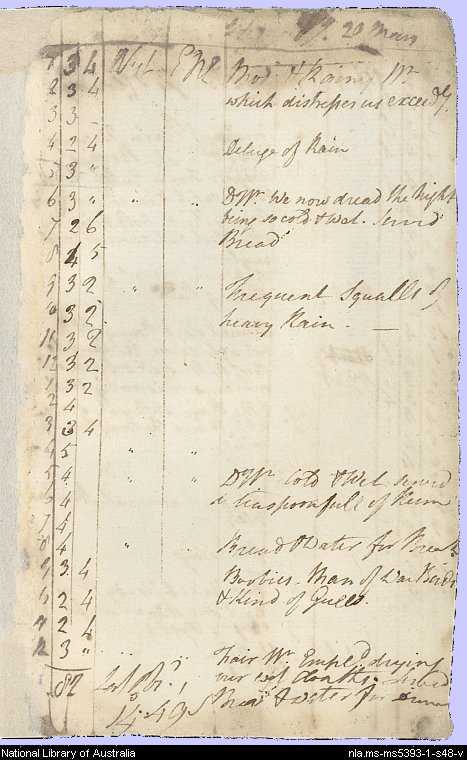 20 May
1 3 4 Mod & Rainy Wr
2 3 4 which distresses us exceedy.
3 3 –
4 2 4 Deluge of Rain
5 3 "
6 3 " " " DoWr. We now dread the Night
7 2 6 being so cold & wet. Served
8 4 5 Bread
9 3 2 " " Frequent Squalls of
10 3 2 heavy Rain. —
11 3 2
12 3 2
1 3 2
2 4
3 3 4
4 5 " "
5 4 " " DoWr Cold & Wet served
6 4 a teaspoonfull of Rum
7 4
8 4 " " Bread & Water for
9 3 4 Boobies. Man of War Birds
2 4 & Kind of Gulls.
2 4
12 3 " Fair Wr Empld drying
82 our wet cloaths. Served
14.49 S & water for
National Library of Australia
nla.ms-ms5393-1-s48-v